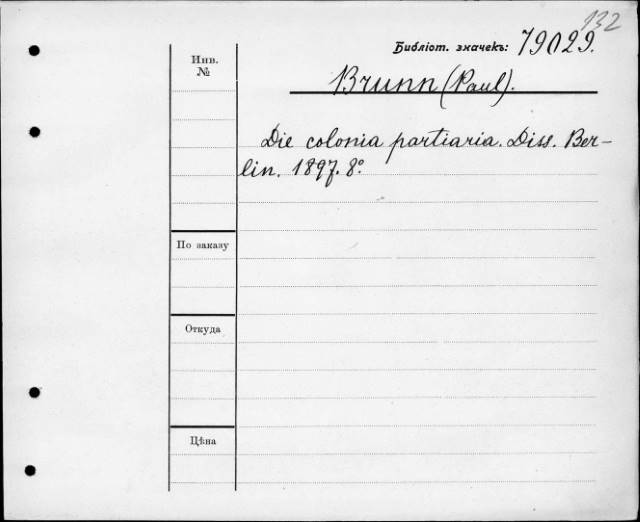 132
Библіот. значекъ: 79029.
Инв.
№
Brunn (Paul).
Die colonia partiaria. Diss. Ber-
lin. 1897. 8°.
По заказу
Откуда
Цѣна